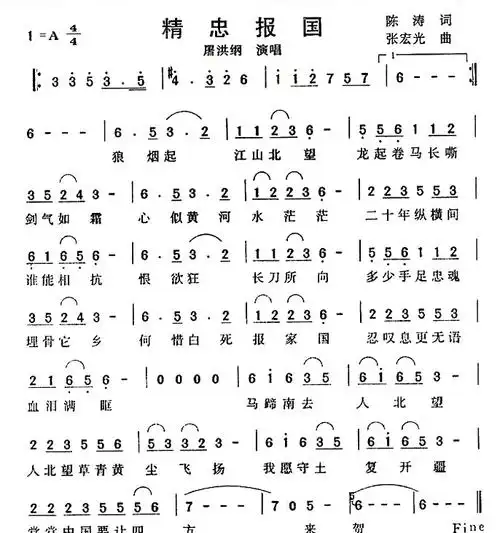 1=A 4/4 精忠报国 陈涛 词
屠洪纲 演唱 张宏光 曲
‖: 3 3 5 3. 5 | #4. 3 2 6 | i i 2 7 5 7 | 1. 6 - - :‖
6 - - | 6. 5 3. 2 | 1 1 2 3 6 | 5 5 6 1 1 2 |
狼烟起 江山北望 龙起卷马长嘶
3 5 2 4 3 - | 6. 5 3. 2 | 1 2 2 3 6 | 2 2 3 5 5 3 |
剑气如霜 心似黄河水茫茫 二十年纵横间
6 1 6 5 6 - | 6. 5 3. 2 | 1 1 2 3 6 | 5 5 6 1 1 2 |
谁能相抗 恨欲狂 长刀所向 多少手足忠魂
3 5 2 4 3 - | 6. 5 3. 2 | 1 2 2 3 6 | 2 2 3 5 5 3 |
埋骨它乡 何惜白死报家国 忍叹息更无语
2 1 6 5 6 - | 0 0 0 0 | 6 i 6 3 5 | 6 6 5 6 - |
血泪满眶 马蹄南去 人北望
2 2 3 5 5 3 | 5 3 2 3 3 - | 6 i 6 3 5 | 6 6 5 6 - |
人北望草青黄尘飞扬 我愿守土复开疆
2 2 3 5 2 2 | 7 - - - | 7 0 5 - | 6 - - - ‖
堂堂中国要让四方 来贺 Fine